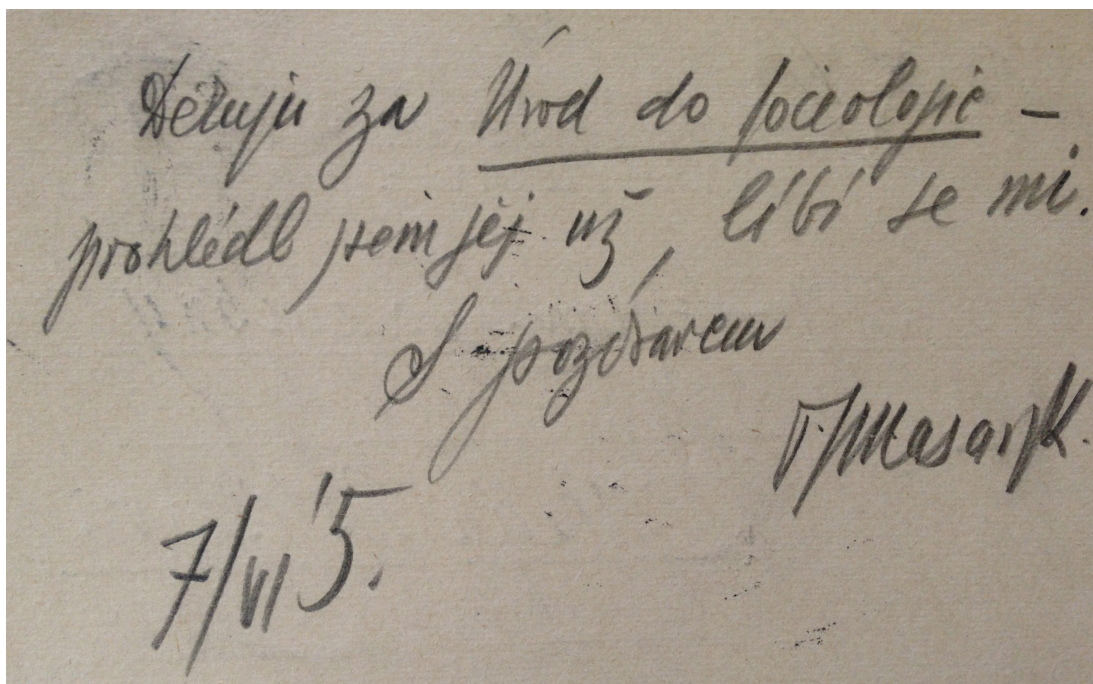 Děkuju za Úvod do sociologie –
prohlédl jsem jej už, líbí se mi.
S pozdravem
TMasaryk.
7/VI '5.